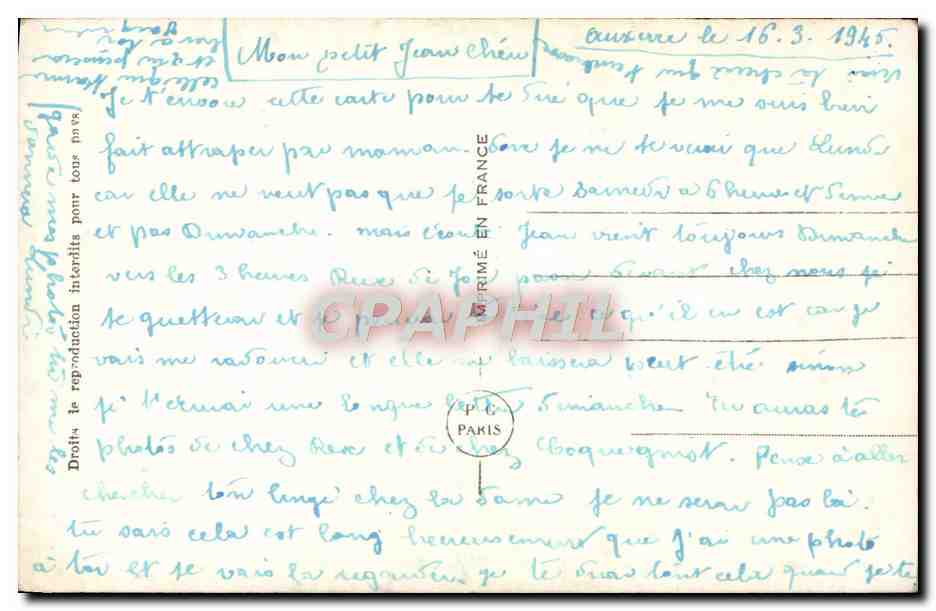 Auxerre le 16.3.1945.
Mon petit Jean Chéri
Je t'envoie cette carte pour te dire que je me suis bien
fait attraper par maman. Donc je ne te verai que Lundi
car elle ne veut pas que je sorte Samedi à 6 heures et demie
et pas Dimanche. mais écoute Jean vient toujours Dimanche
vers les 3 heures Rex si Jo devant chez nous je
te guetterai et te ce qu'il en est car je
vais me radoucir et elle me laissera peut être sinon
je t'ecrirai une longue lettre Dimanche. Tu auras tes
photos de chez Rex et de chez Coquegniot. Pense à aller
chercher ton linge chez la Dame je ne serai pas là.
tu sais cela est long heureusement que j'ai une photo
à toi et je vais la regarder. je te dirai tout cela quand je te
garde mes photos tu me les
donnera Lundi
celle qui t'aime
et qui pensera
à toi
qui t'embrasse
Droits de reproduction interdits pour tous pays
IMPRIMÉ EN FRANCE
P C
PARIS
CPAPHIL